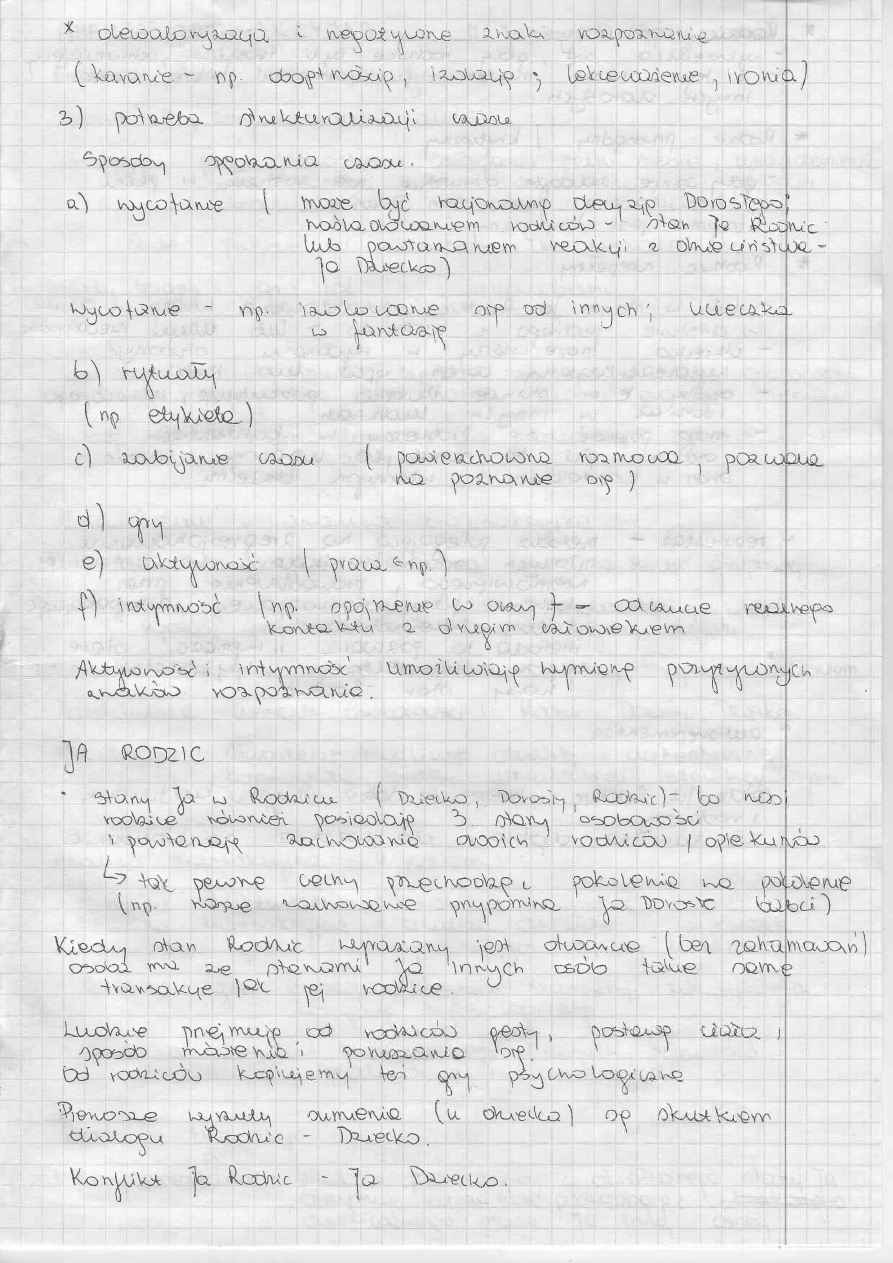 * dewaloryzacja i negatywne znaki rozpoznania
(karanie - np. obojętnością, izolacją ; lekceważenie, ironia)
3) potrzeba strukturalizacji czasu
Sposoby spędzania czasu.
a) wycofanie ( może być racjonalną decyzją Dorosłego;
naśladowaniem rodziców - stan Ja Rodzic
lub powtarzaniem reakcji z dzieciństwa -
Ja Dziecko)
Wycofanie - np. izolowanie się od innych ; ucieczka
w fantazję
b) rytuały
(np etykieta)
c) zabijanie czasu ( powierzchowna rozmowa, pozwala
na poznanie się )
d) gry
e) aktywność ( praca np.)
f) intymność (np. spojrzenie w oczy) - odczucie realnego
kontaktu z drugim człowiekiem
Aktywność i intymność umożliwiają wymianę pozytywnych
znaków rozpoznania.
JA RODZIC
· stany Ja w Rodzicu ( Dziecko, Dorosły, Rodzic) - bo nasi
rodzice również posiadają 3 stany osobowości
i powtarzają zachowania swoich rodziców / opiekunów
↳ tak pewne cechy przechodzą z pokolenia na pokolenie
(np. nasze zachowanie przypomina Ja Dorosłe babci)
Kiedy stan Rodzic wyrażany jest otwarcie (bez zahamowań)
osoba ma ze stanami Ja innych osób takie same
transakcje jak jej rodzice.
Ludzie przejmują od rodziców gesty, postawę ciała i
sposób mówienia i poruszania się.
Od rodziców kopiujemy też gry psychologiczne
Pierwsze wyrzuty sumienia (u dziecka) są skutkiem
dialogu Rodzic - Dziecko.
Konflikt Ja Rodzic - Ja Dziecko.